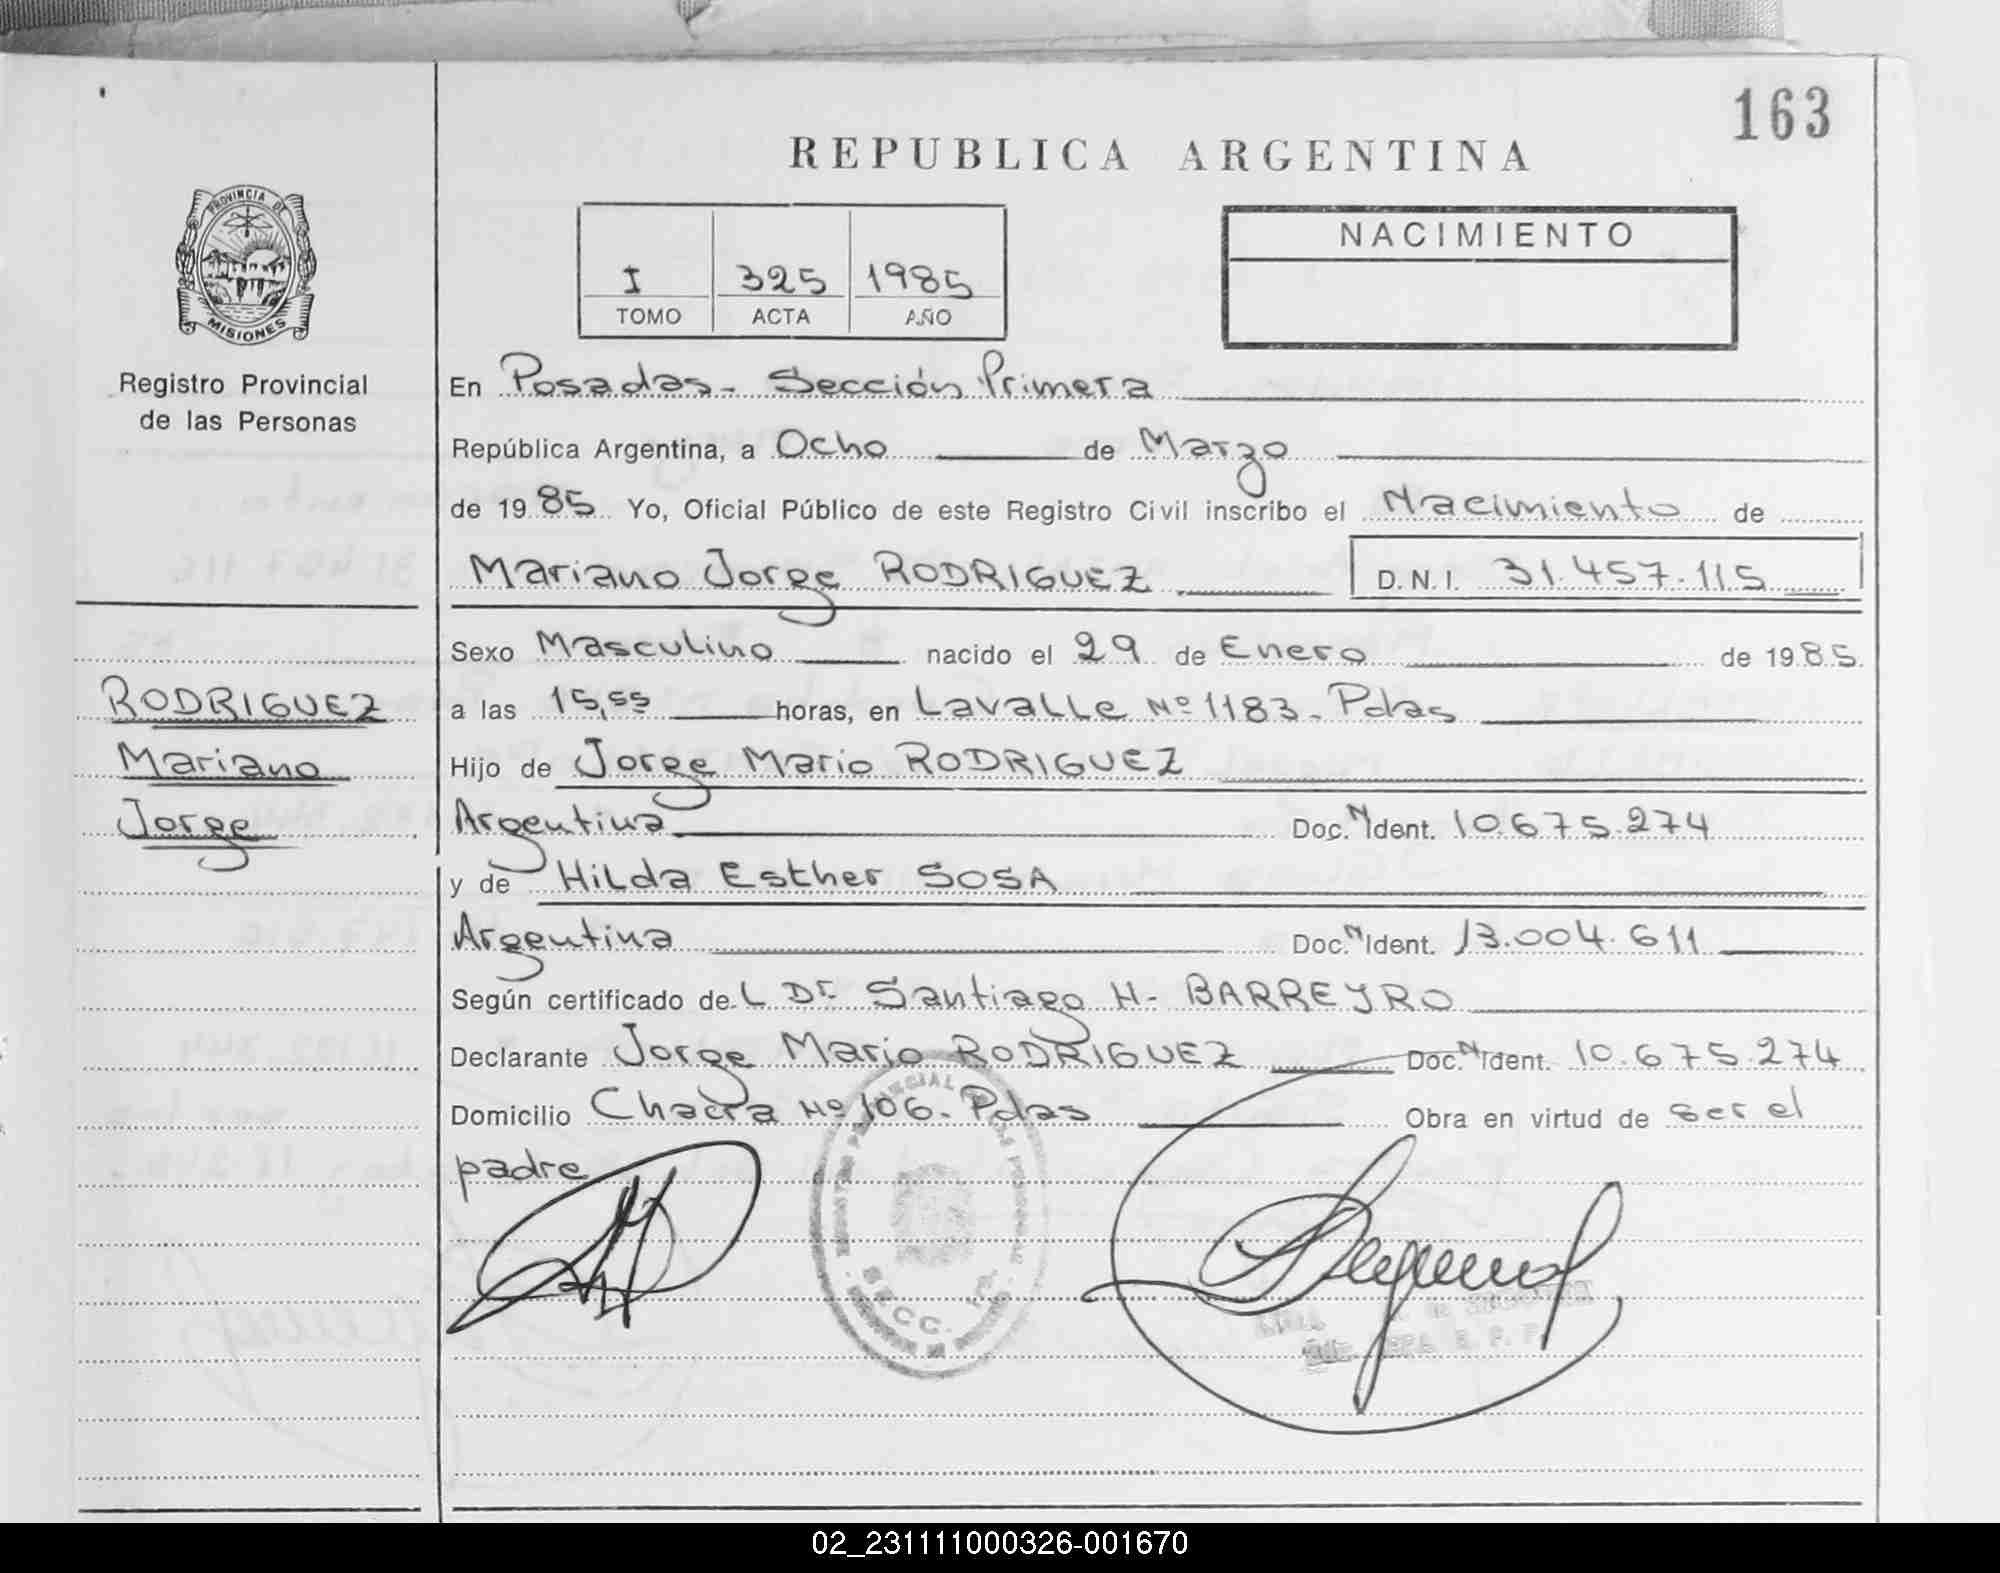 163
REPUBLICA ARGENTINA
PROVINCIA DE
MISIONES
Registro Provincial
de las Personas
I 325 1985
TOMO ACTA AÑO
NACIMIENTO
En Posadas - Sección Primera
República Argentina, a Ocho de Marzo
de 1985 Yo, Oficial Público de este Registro Civil inscribo el Nacimiento de
Mariano Jorge RODRIGUEZ D.N.I. 31.457.115
Sexo Masculino nacido el 29 de Enero de 1985
RODRIGUEZ
Mariano
Jorge
a las 15,55 horas, en Lavalle Nº 1183 - Pdas
Hijo de Jorge Mario RODRIGUEZ
Argentina Doc. N Ident. 10.675.274
y de Hilda Esther SOSA
Argentina Doc. N Ident. 13.004.611
Según certificado del Dr. Santiago H. BARREYRO
Declarante Jorge Mario RODRIGUEZ Doc. N Ident. 10.675.274
Domicilio Chacra Nº 106 - Pdas Obra en virtud de ser el
padre
SECC.
02_231111000326-001670